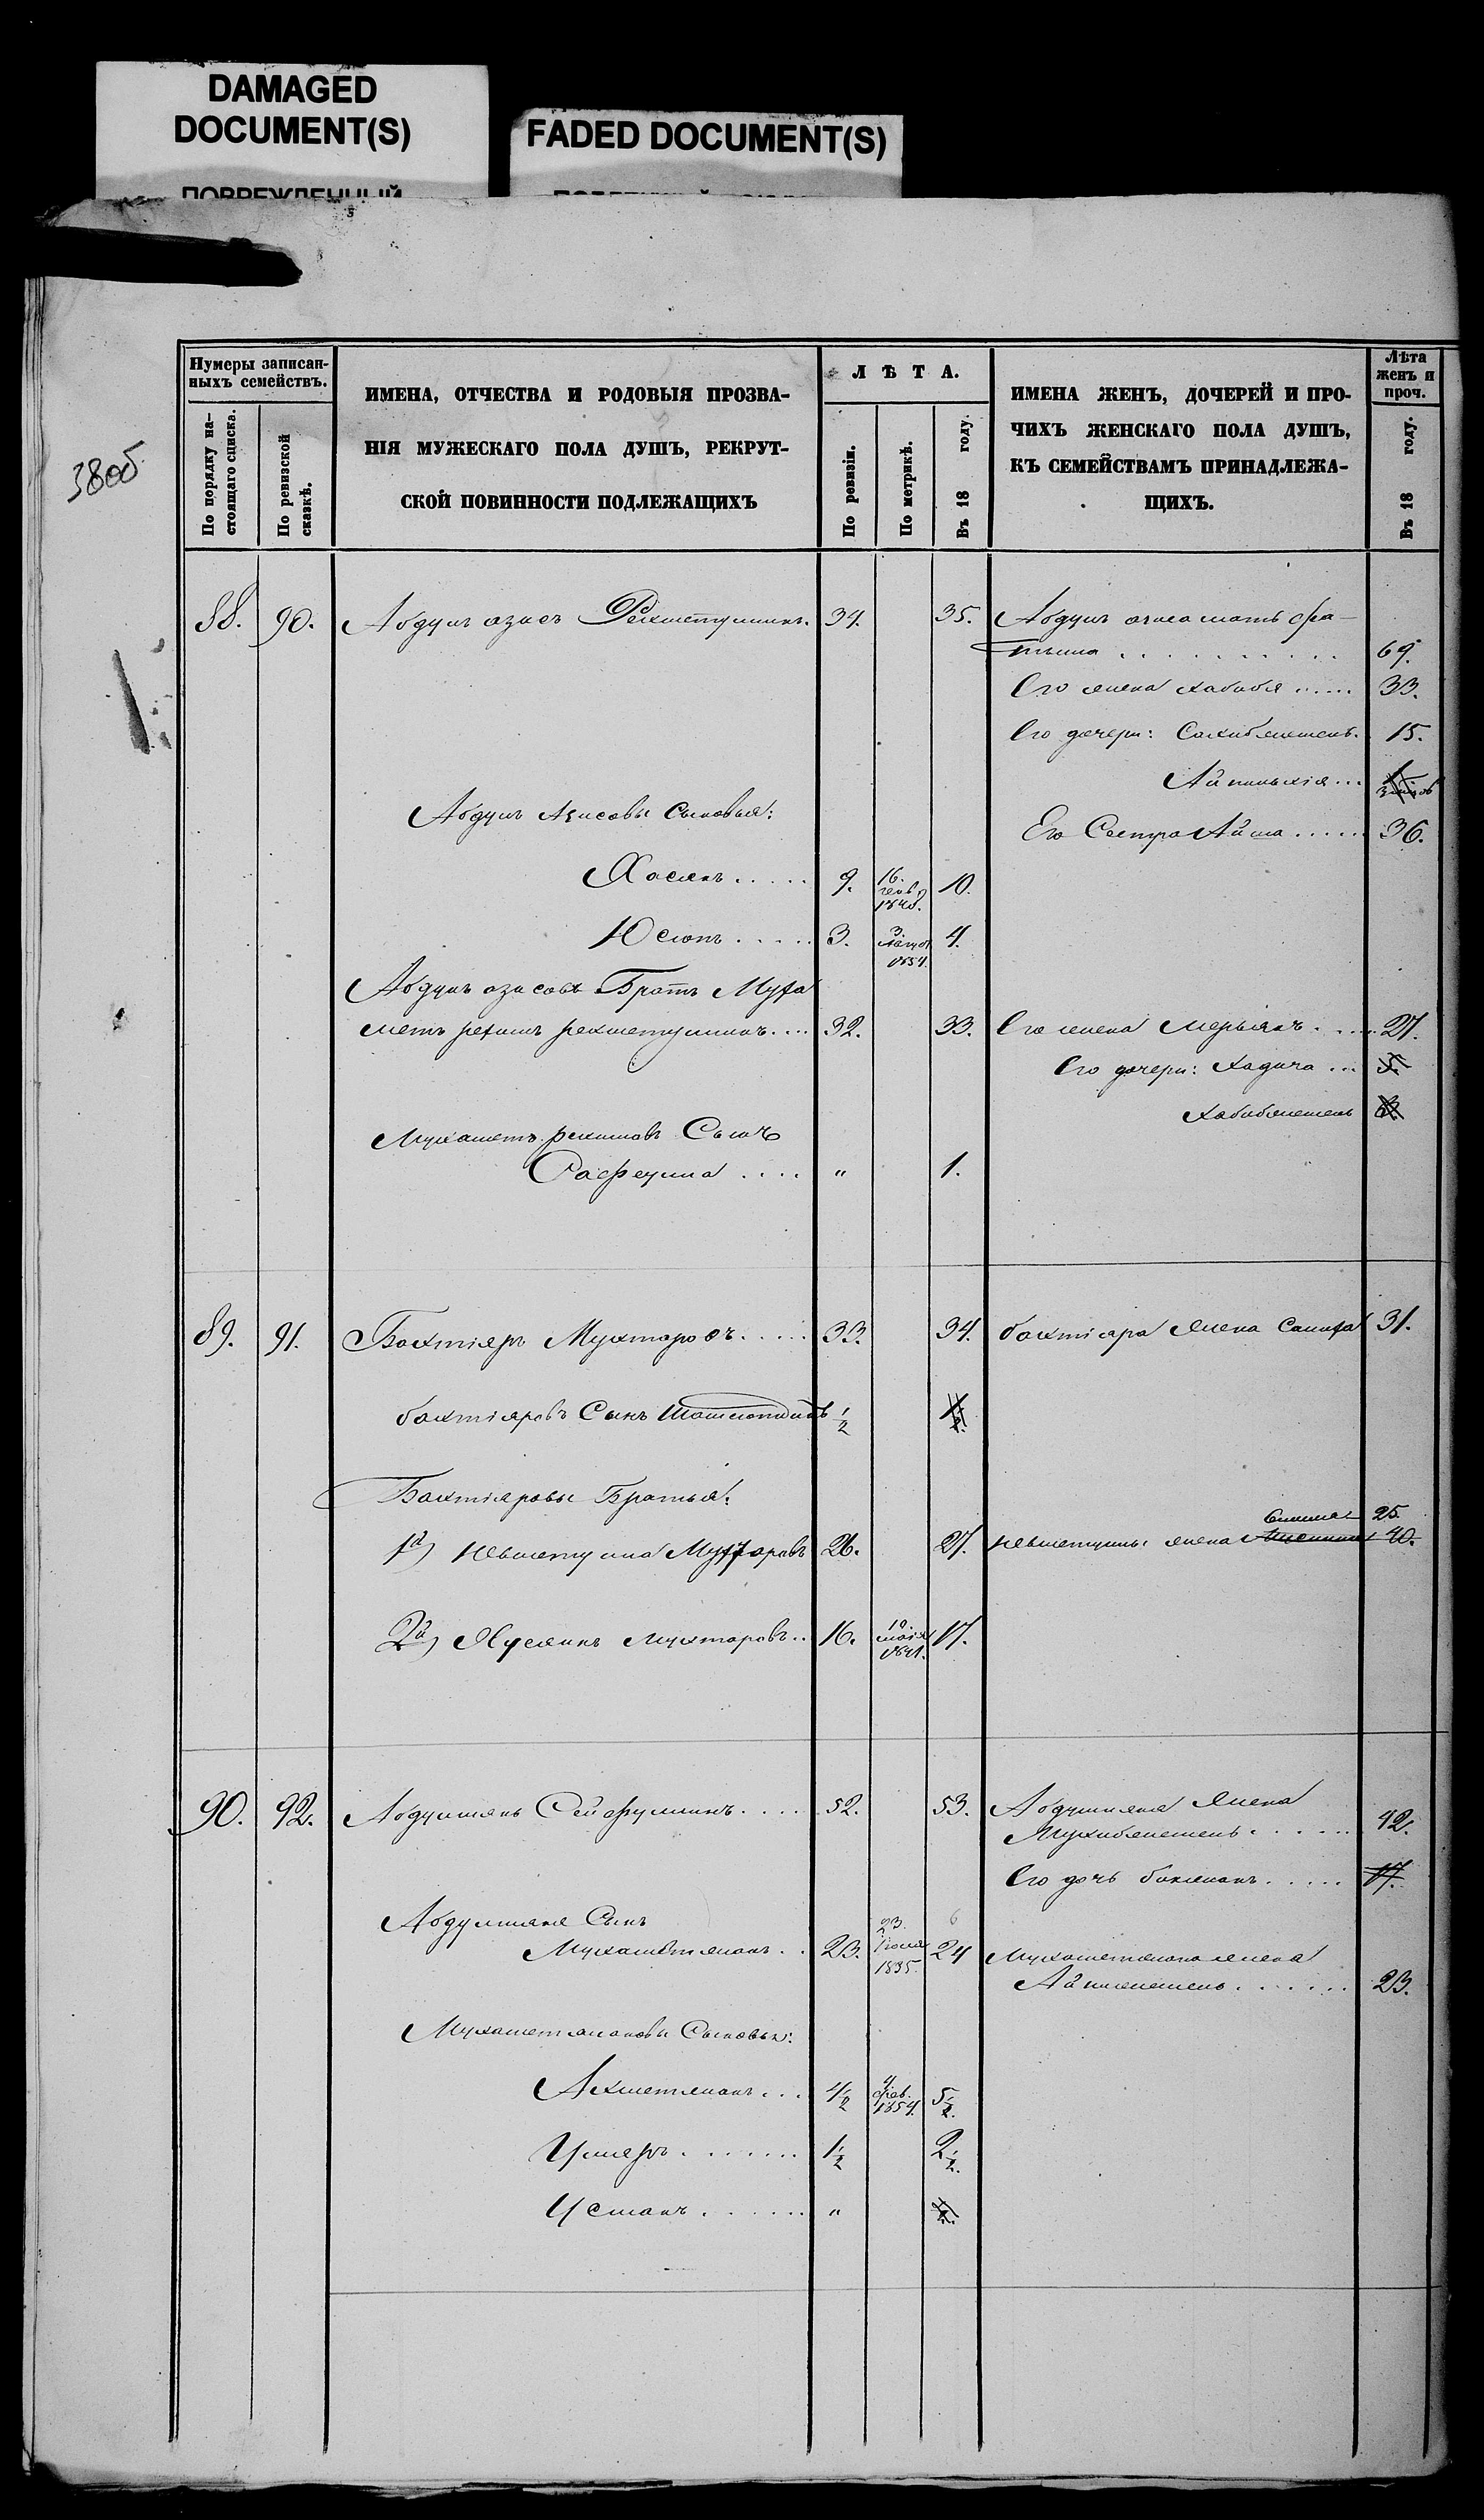 DAMAGED
DOCUMENT(S)
FADED DOCUMENT(S)
38об
Нумеры записан-
ныхъ семействъ.
По порядку на-
стоящаго списка.
По ревизской
сказкѣ.
ИМЕНА, ОТЧЕСТВА И РОДОВЫЯ ПРОЗВА-
НІЯ МУЖЕСКАГО ПОЛА ДУШЪ, РЕКРУТ-
СКОЙ ПОВИННОСТИ ПОДЛЕЖАЩИХЪ
Л Ѣ Т А.
По ревизіи.
По метрикѣ.
Въ 18 году.
ИМЕНА ЖЕНЪ, ДОЧЕРЕЙ И ПРО-
ЧИХЪ ЖЕНСКАГО ПОЛА ДУШЪ,
КЪ СЕМЕЙСТВАМЪ ПРИНАДЛЕЖА-
ЩИХЪ.
Лѣта
женъ и
проч.
Въ 18 году.
88. 90. Абдулъ азисъ Рехметуллинъ. 34. 35. Абдулъ азиса мать Фа-
тыма 69.
Его жена хабибя 33.
Его дочери: Сахибжемень. 15.
Абдулъ Азисовы Сыновья:
Его Сестра Айша 36.
Хасянъ 9. 16. 10.
Юсюпъ 3. 3. 4.
1854.
Абдулъ азисовъ Братъ Муха
метъ рехимъ рехметуллинъ 32. 33. Его жена Мерьямъ 27.
Его дочери: Хадича
Хабибжемень
Мухаметъ рехимовъ Сынъ
" 1.
89. 91. Бахтіяръ Мухтаровъ 33. 34. бахтіяра жена 31.
бахтіяровъ Сынъ 1/2
Бахтіяровы Братья:
25.
1й) Мухтаровъ 26. 27. жена 40.
2й) Хусяинъ Мухтаровъ 16. 10. маія 17.
90. 92. Абдулжянъ Сейфуллинъ 52. 53. Абдулжяна Жена
Мухибжемень 42.
Его дочь 17.
Абдулжяна Сынъ
Мухаметжанъ 23. 23. Іюля 1835. 24 Мухаметжана жена
23.
Мухаметжановы Сыновья:
Ахметжанъ 4 1/2 4 фев. 1854. 5 1/2.
Умяръ 1 1/2 2 1/2.
Усманъ "